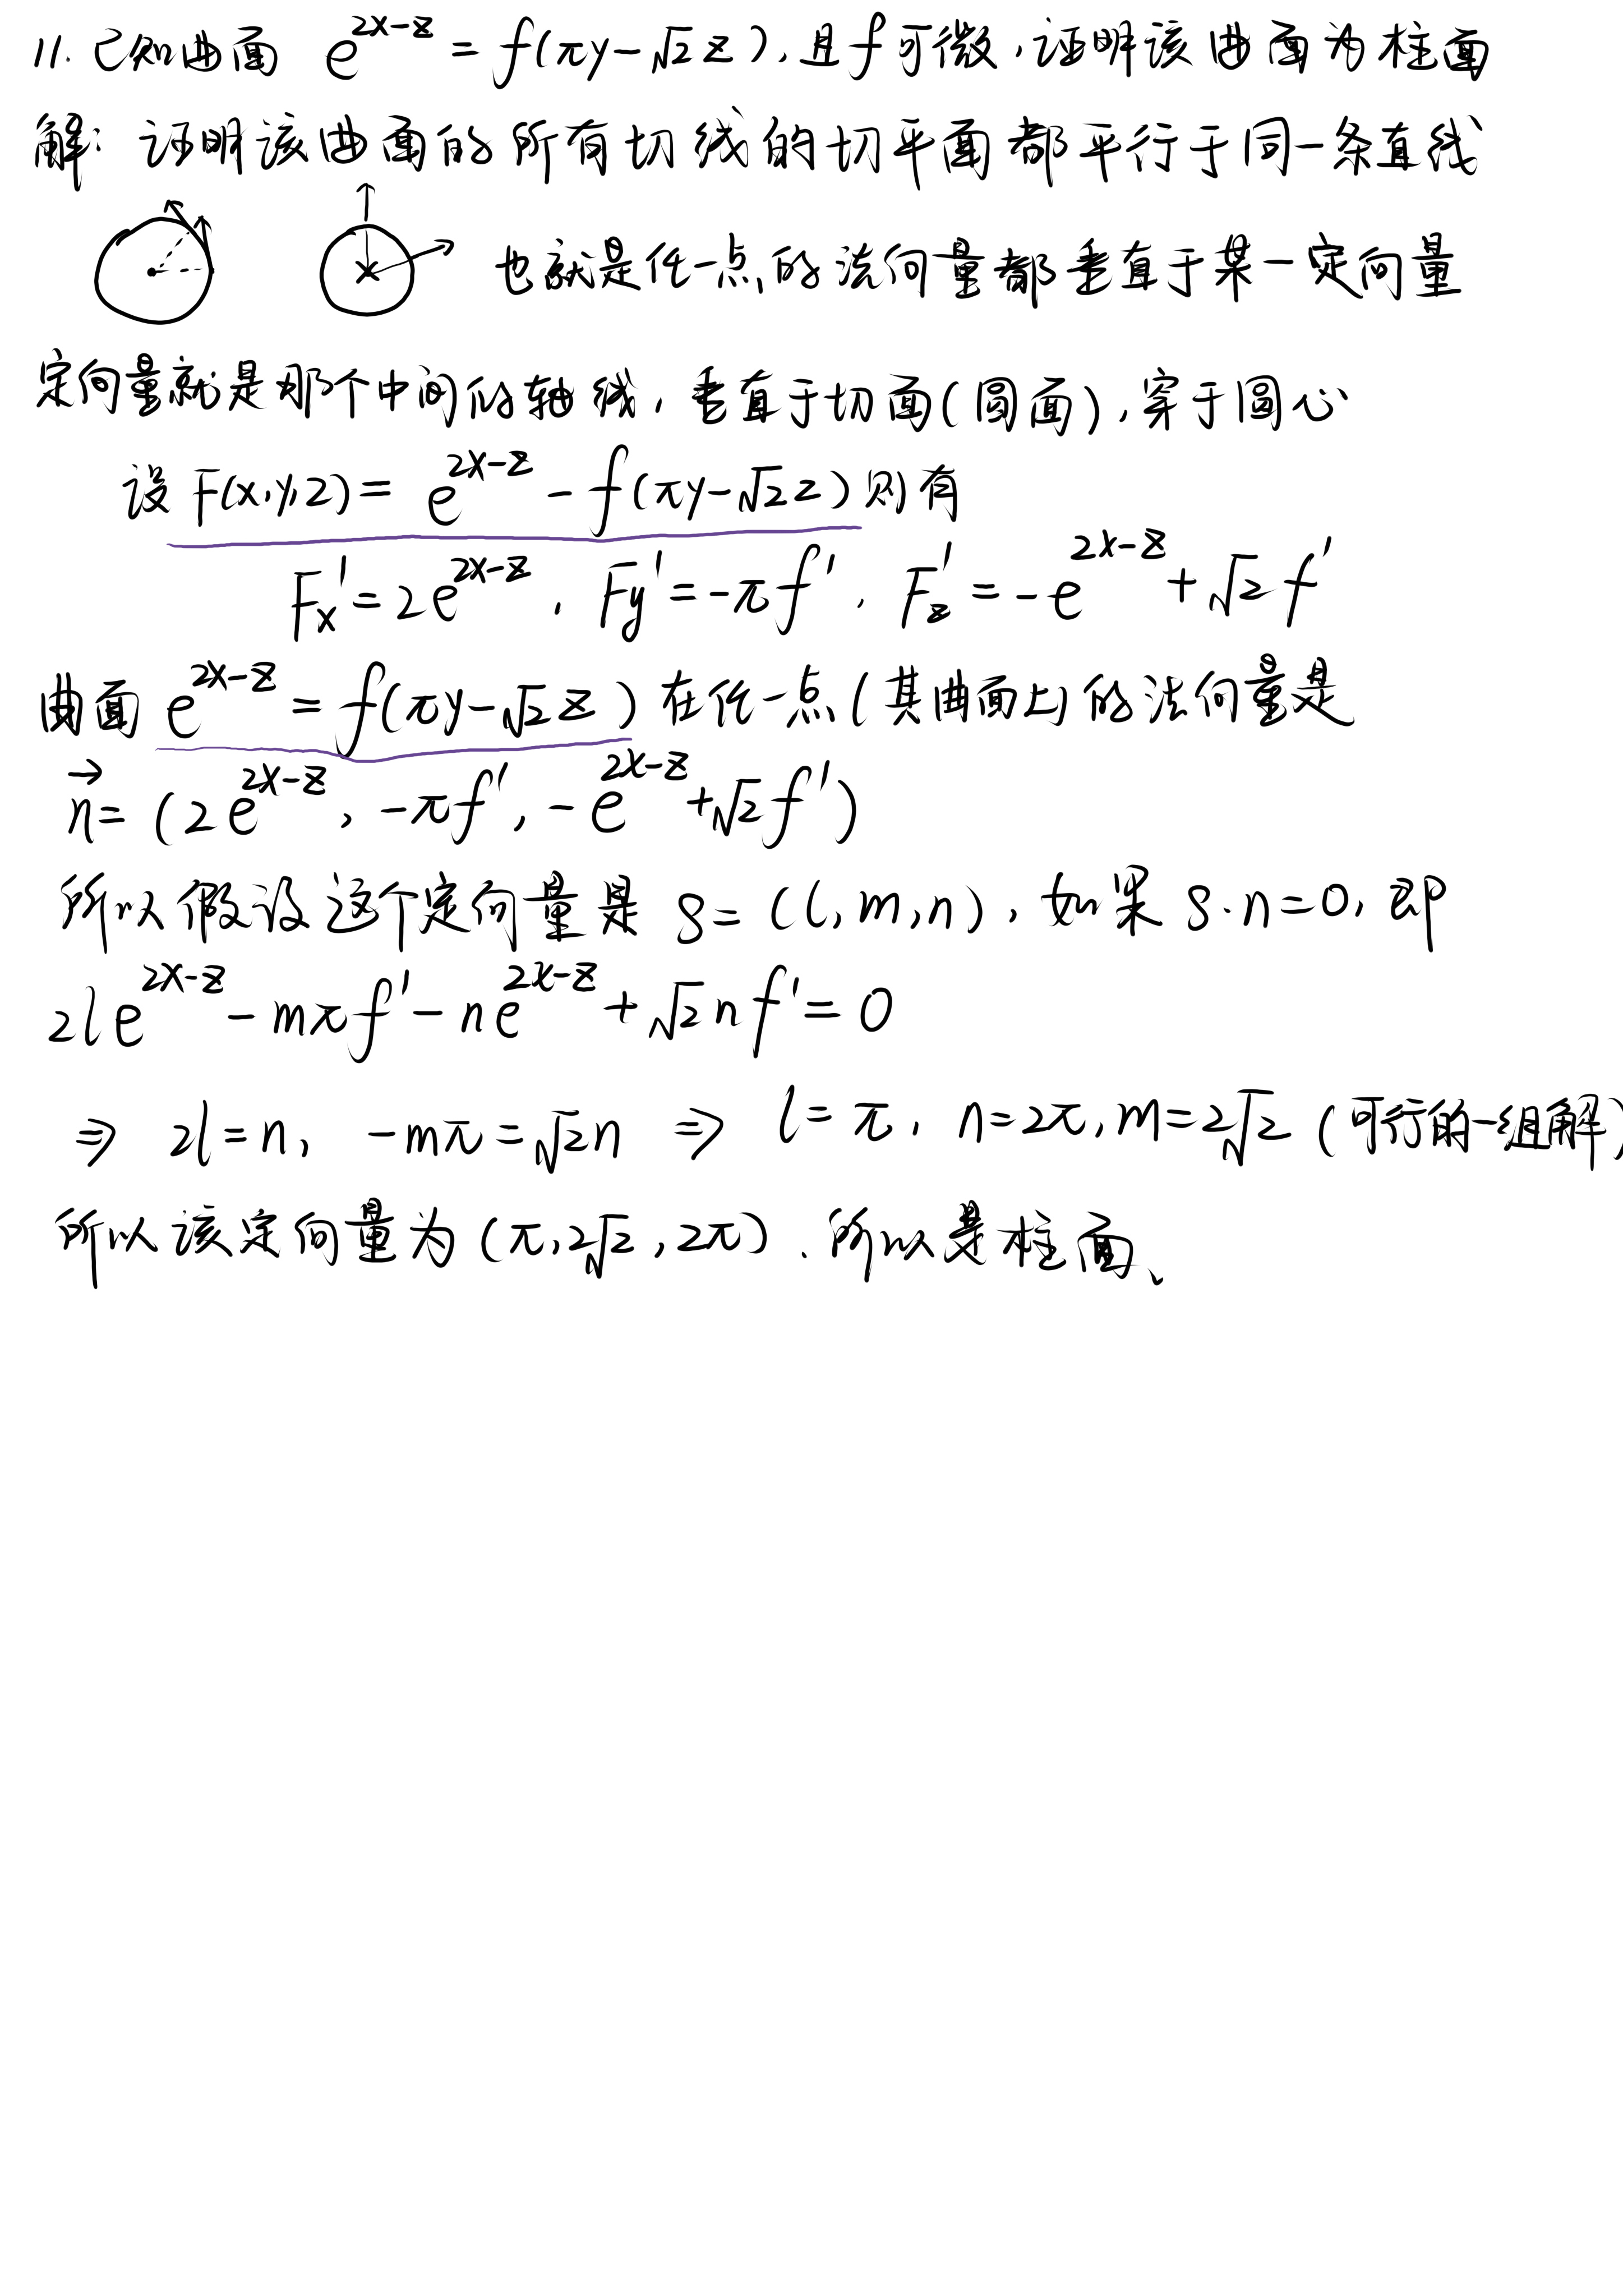 11. 已知曲面 e^{2x-z} = f(πy-√2z), 且f可微,证明该曲面为柱面
解: 证明该曲面的所有切线的切平面都平行于同一条直线
也就是任一点的法向量都垂直于某一定向量
定向量就是那个中间的轴线,垂直于切面(圆面),穿于圆心
设F(x,y,z)= e^{2x-z} - f(πy-√2z)则有
Fx' = 2e^{2x-z}, Fy' = -πf', Fz' = -e^{2x-z} + √2 f'
曲面 e^{2x-z} = f(πy-√2z) 在任一点(其曲面上)的法向量是
n⃗ = (2e^{2x-z}, -πf', -e^{2x-z}+√2f')
所以假设这个定向量是 s = (l,m,n), 如果 s·n=0, 即
2le^{2x-z} - mπf' - ne^{2x-z} + √2nf' = 0
⇒ 2l=n, -mπ=√2n ⇒ l=π, n=2π, m=2√2 (可行的一组解)
所以该定向量为(π,2√2,2π).所以是柱面、